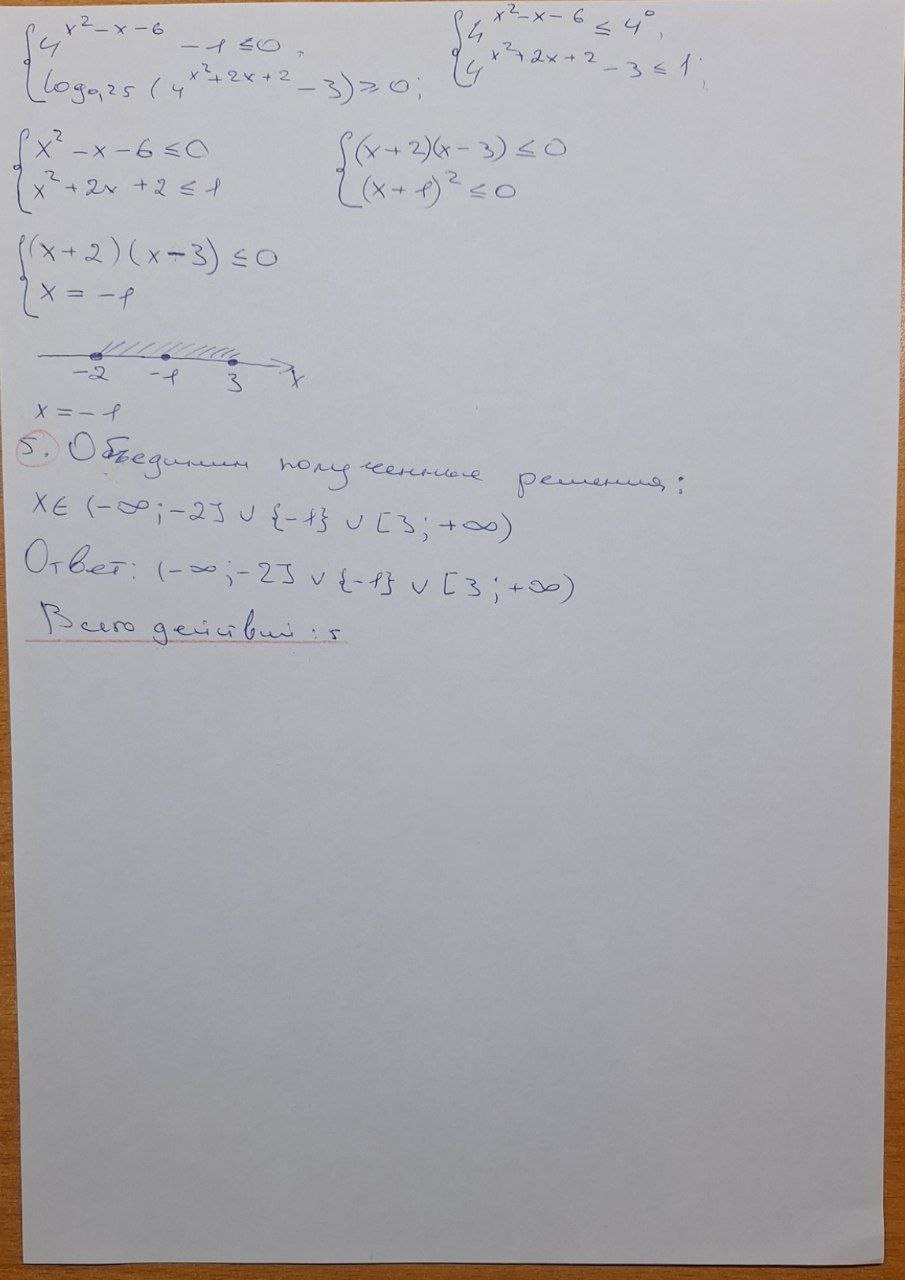 {4^{x²-x-6} - 1 ≤ 0,
log₀,₂₅ (4^{x²+2x+2} - 3) ≥ 0;
{4^{x²-x-6} ≤ 4⁰,
4^{x²+2x+2} - 3 ≤ 1;
{x² - x - 6 ≤ 0
x² + 2x + 2 ≤ 1
{(x+2)(x-3) ≤ 0
(x+1)² ≤ 0
{(x+2)(x-3) ≤ 0
x = -1
-2 -1 3 x
x = -1
5. Объединим полученные решения:
x ∈ (-∞; -2] ∪ {-1} ∪ [3; +∞)
Ответ: (-∞; -2] ∪ {-1} ∪ [3; +∞)
Всего действий: 5